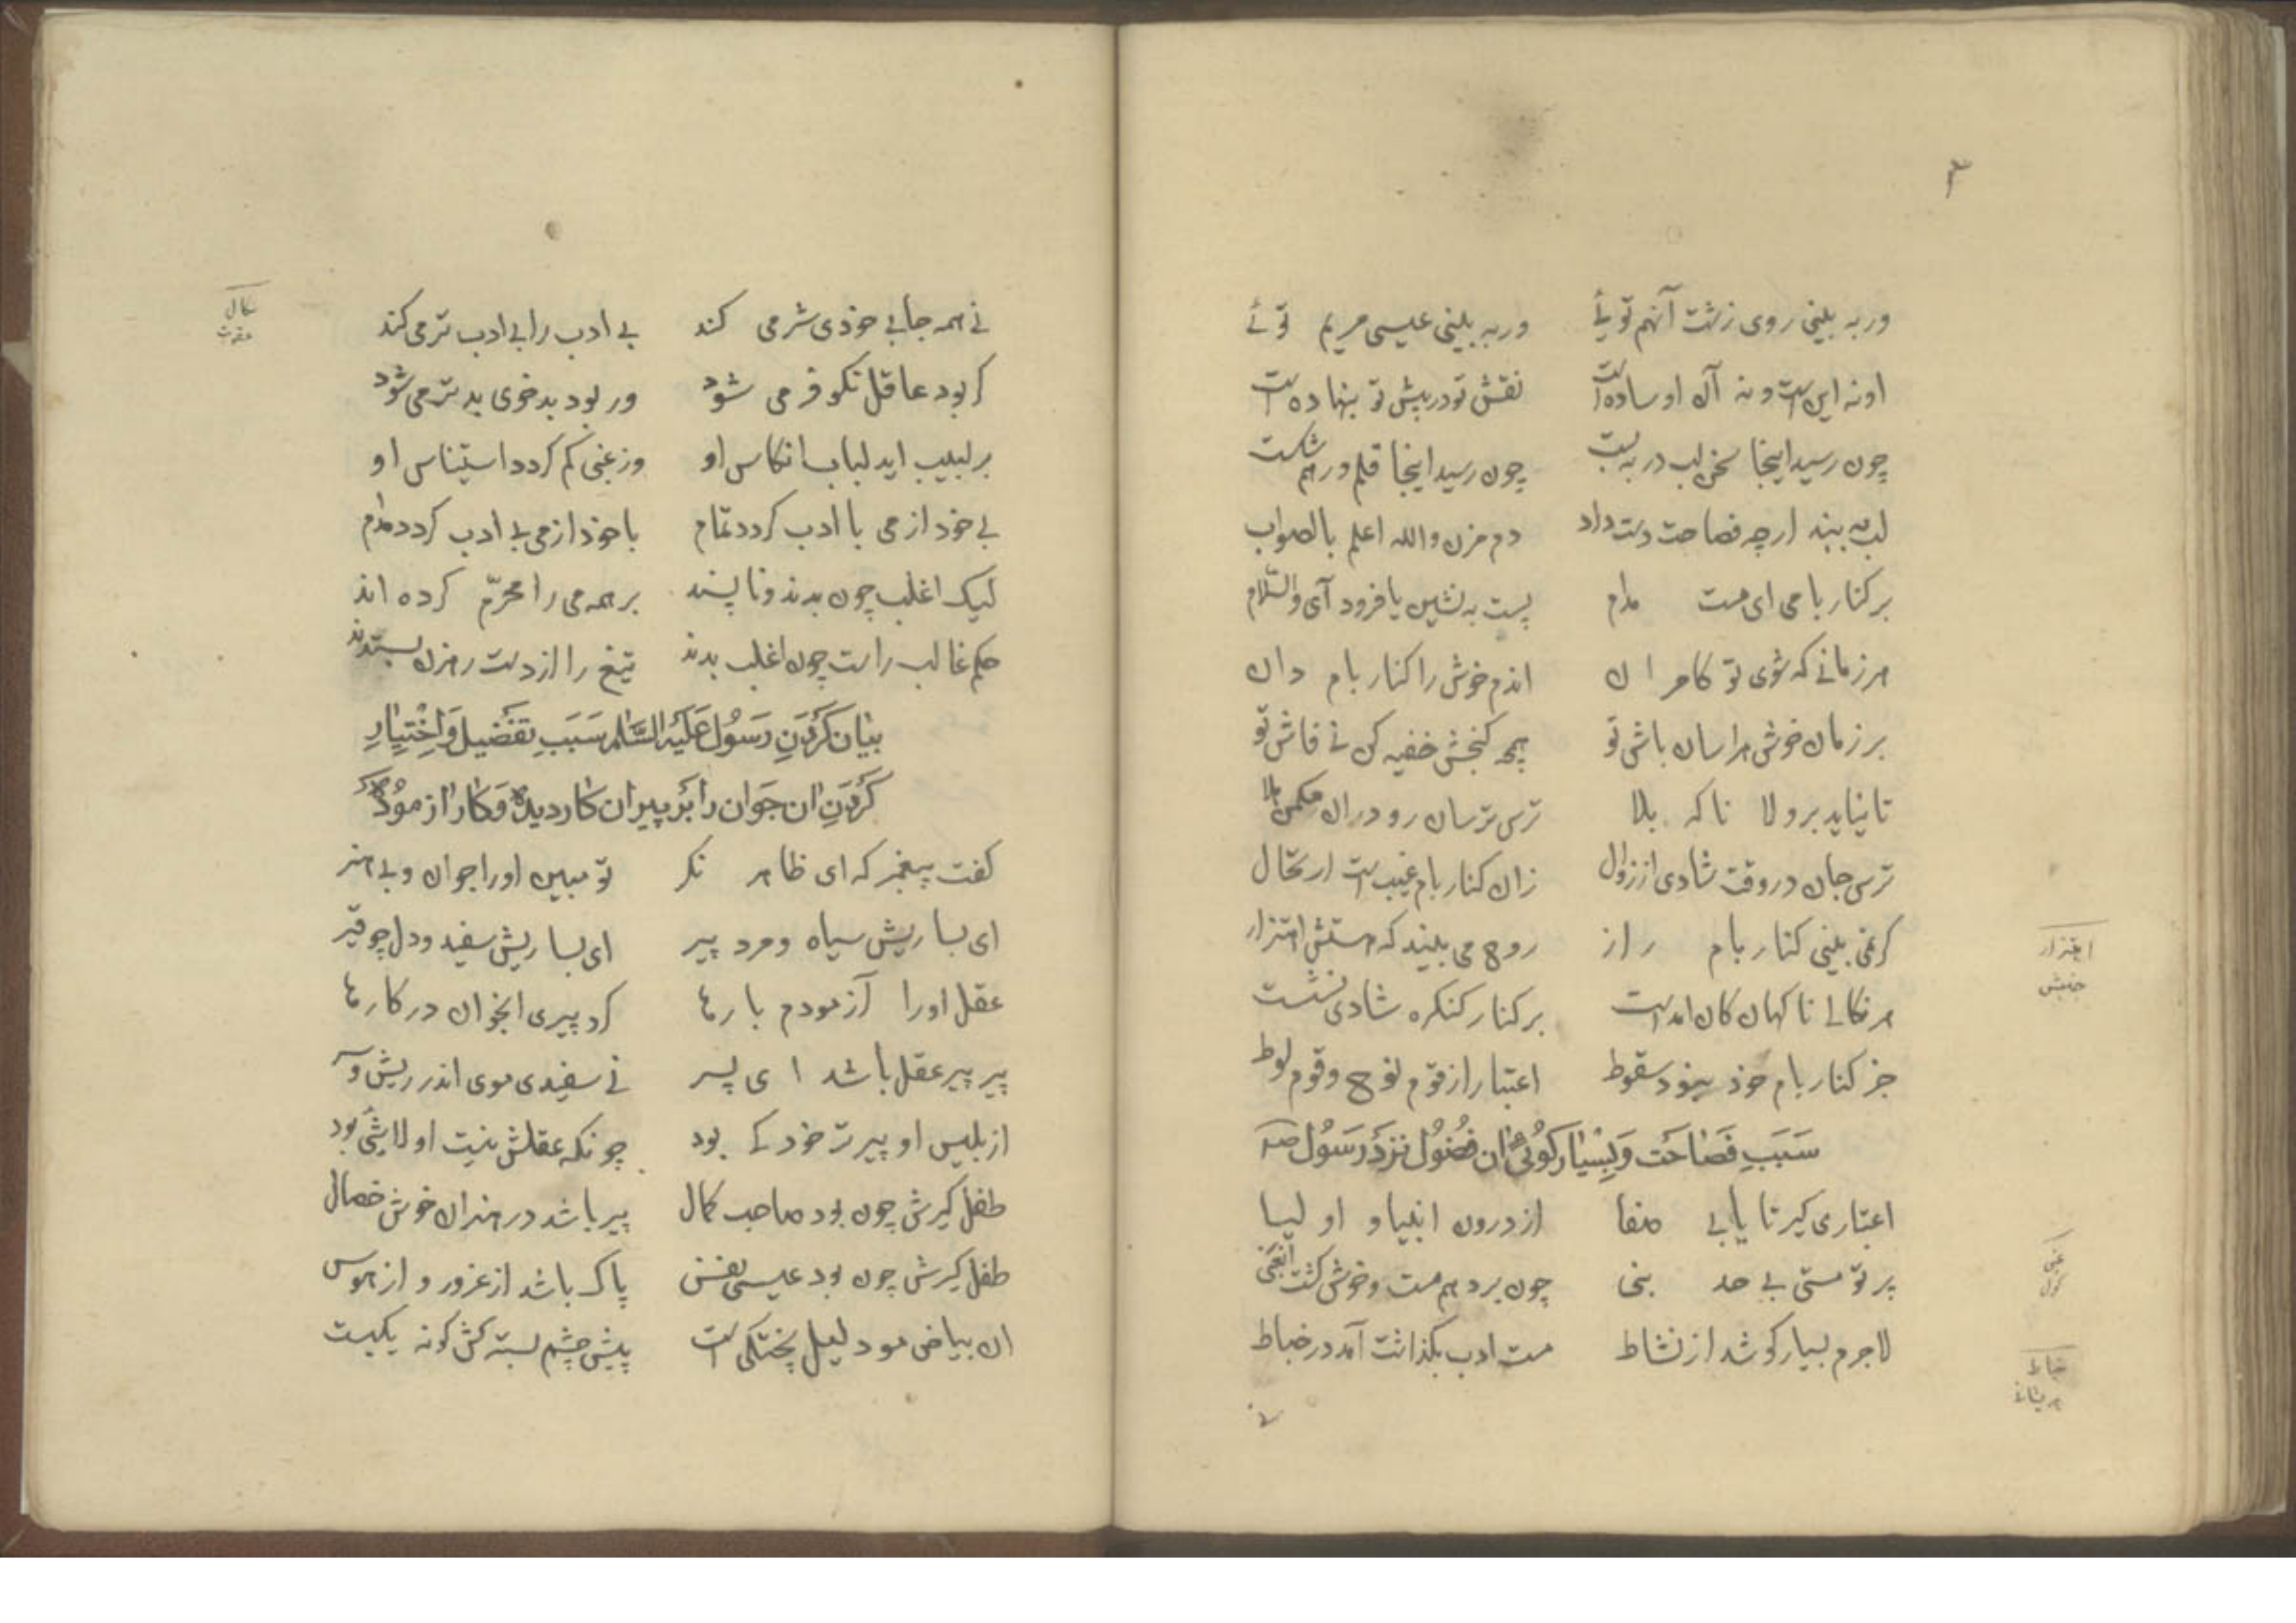 ۴
ور به بینی روی زشت آنهم تویئ ور به بینی عیسی مریم توئے
او نه این است و نه آن او ساده است نقش تو در پیش تو بنهاده است
چون رسید اینجا سخن لب در به بست چون رسید اینجا قلم درهم شکست
لب به بند ارچه فصاحت دست داد دم مزن والله اعلم بالصواب
بر کنار بامی ای مست مدام پست به نشین یا فرود آی والسّلام
هر زمانے که شوی تو کامران اندم خوش را کنار بام دان
بر زمان خوش هراسان باش تو همچو کنجش خفیه کن نے فاش تو
تا نیاید بر ولا ناکه بلا ترس ترسان رو در ان مکمن هلا
ترس جان در وقت شادی از زوال زان کنار بام غیب است ارتحال
کر نمی بینی کنار بام راز روح می بیند که هستش اهتزاز
هر نکالے ناکهان کان امده است بر کنار کنکره شادی نشست
جز کنار بام خود نبود سقوط اعتبار از قوم نوح و قوم لوط
سَبَبِ فَصَاحَت وَ بِسْیَار کُوئیِ ان فُضُول نَزدِ رَسُول
اعتباری کیر تا یابی صفا از درون انبیا و اولیا
پرتو مستی بے حد نبی چون بزد هم مست و خوش کشت انغبی
لاجرم بسیارکو شد از نشاط مست ادب بکذاشت آمد در خباط
اهتزاز
جنبش
غبی
کول
خباط
نے
نے همه جا بے خودی شر می کند بے ادب را بے ادب تر می کند
کر بود عاقل نکو فر می شود ور بود بدخوی بدتر می شود
بر لبیب اید لباب انکاس او وز غبی کم کردد استیناس او
بے خود از می با ادب کردد تمام با خود از می بے ادب کردد مدام
لیک اغلب چون بدند و ناپسند بر همه می را محرّم کرده اند
حکم غالب راست چون اغلب بدند تیغ را از دست رهزن بستدند
بَیَان کَرْدَنِ رَسُول عَلَیْهِ السَّلَام سَبَبِ تَفْضِیل وَ اِخْتِیَارِ
کَرْدَنِ ان جَوَان رَا بَر پیران کار دیده وَ کار ازموده
کفت پیغمبر که ای ظاهر نکر تو مبین او را جوان و بی هنر
ای بسا ریش سیاه و مرد پیر ای بسا ریش سفید و دل چو قیر
عقل او را آزمودم بارها کرد پیری انجوان در کارها
پیر پیر عقل باشد ای پسر نے سفیدی موی اندر ریش و سر
از بلیس او پیرتر خود کے بود چونکه عقلش نیست او لاشئ بود
طفل کیرش چون بود صاحب کمال پیر باشد در هنر ان خوش خصال
طفل کیرش چون بود عیسی نفس پاک باشد از غرور و از هوس
ان بیاض مو دلیل پختکی است پیش چشم بسته کش کونه یکیست
نکال
عقوبت